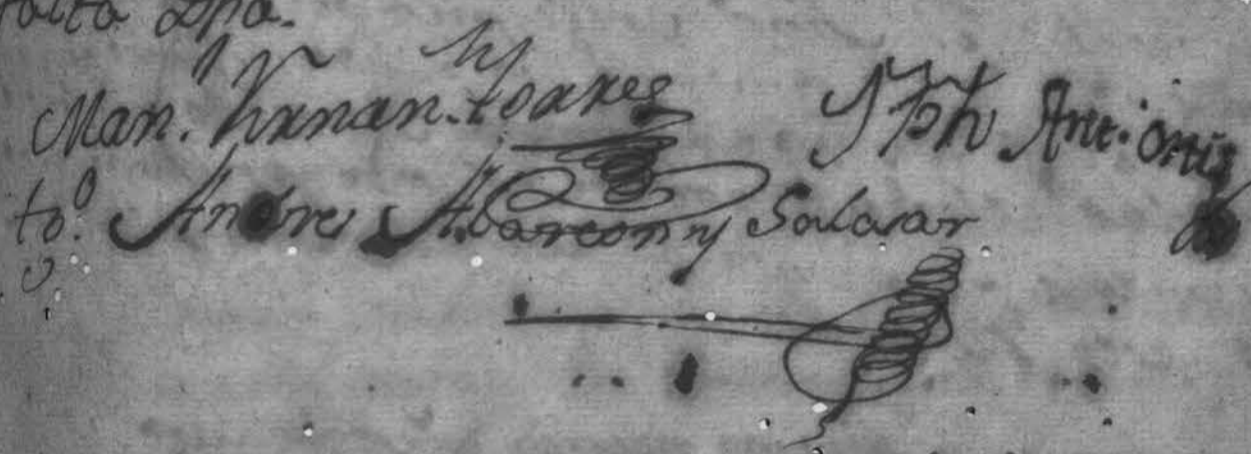 Man. Hernan. toarres Jph Ant. ortis
to. Andres Alarcon y Salasar